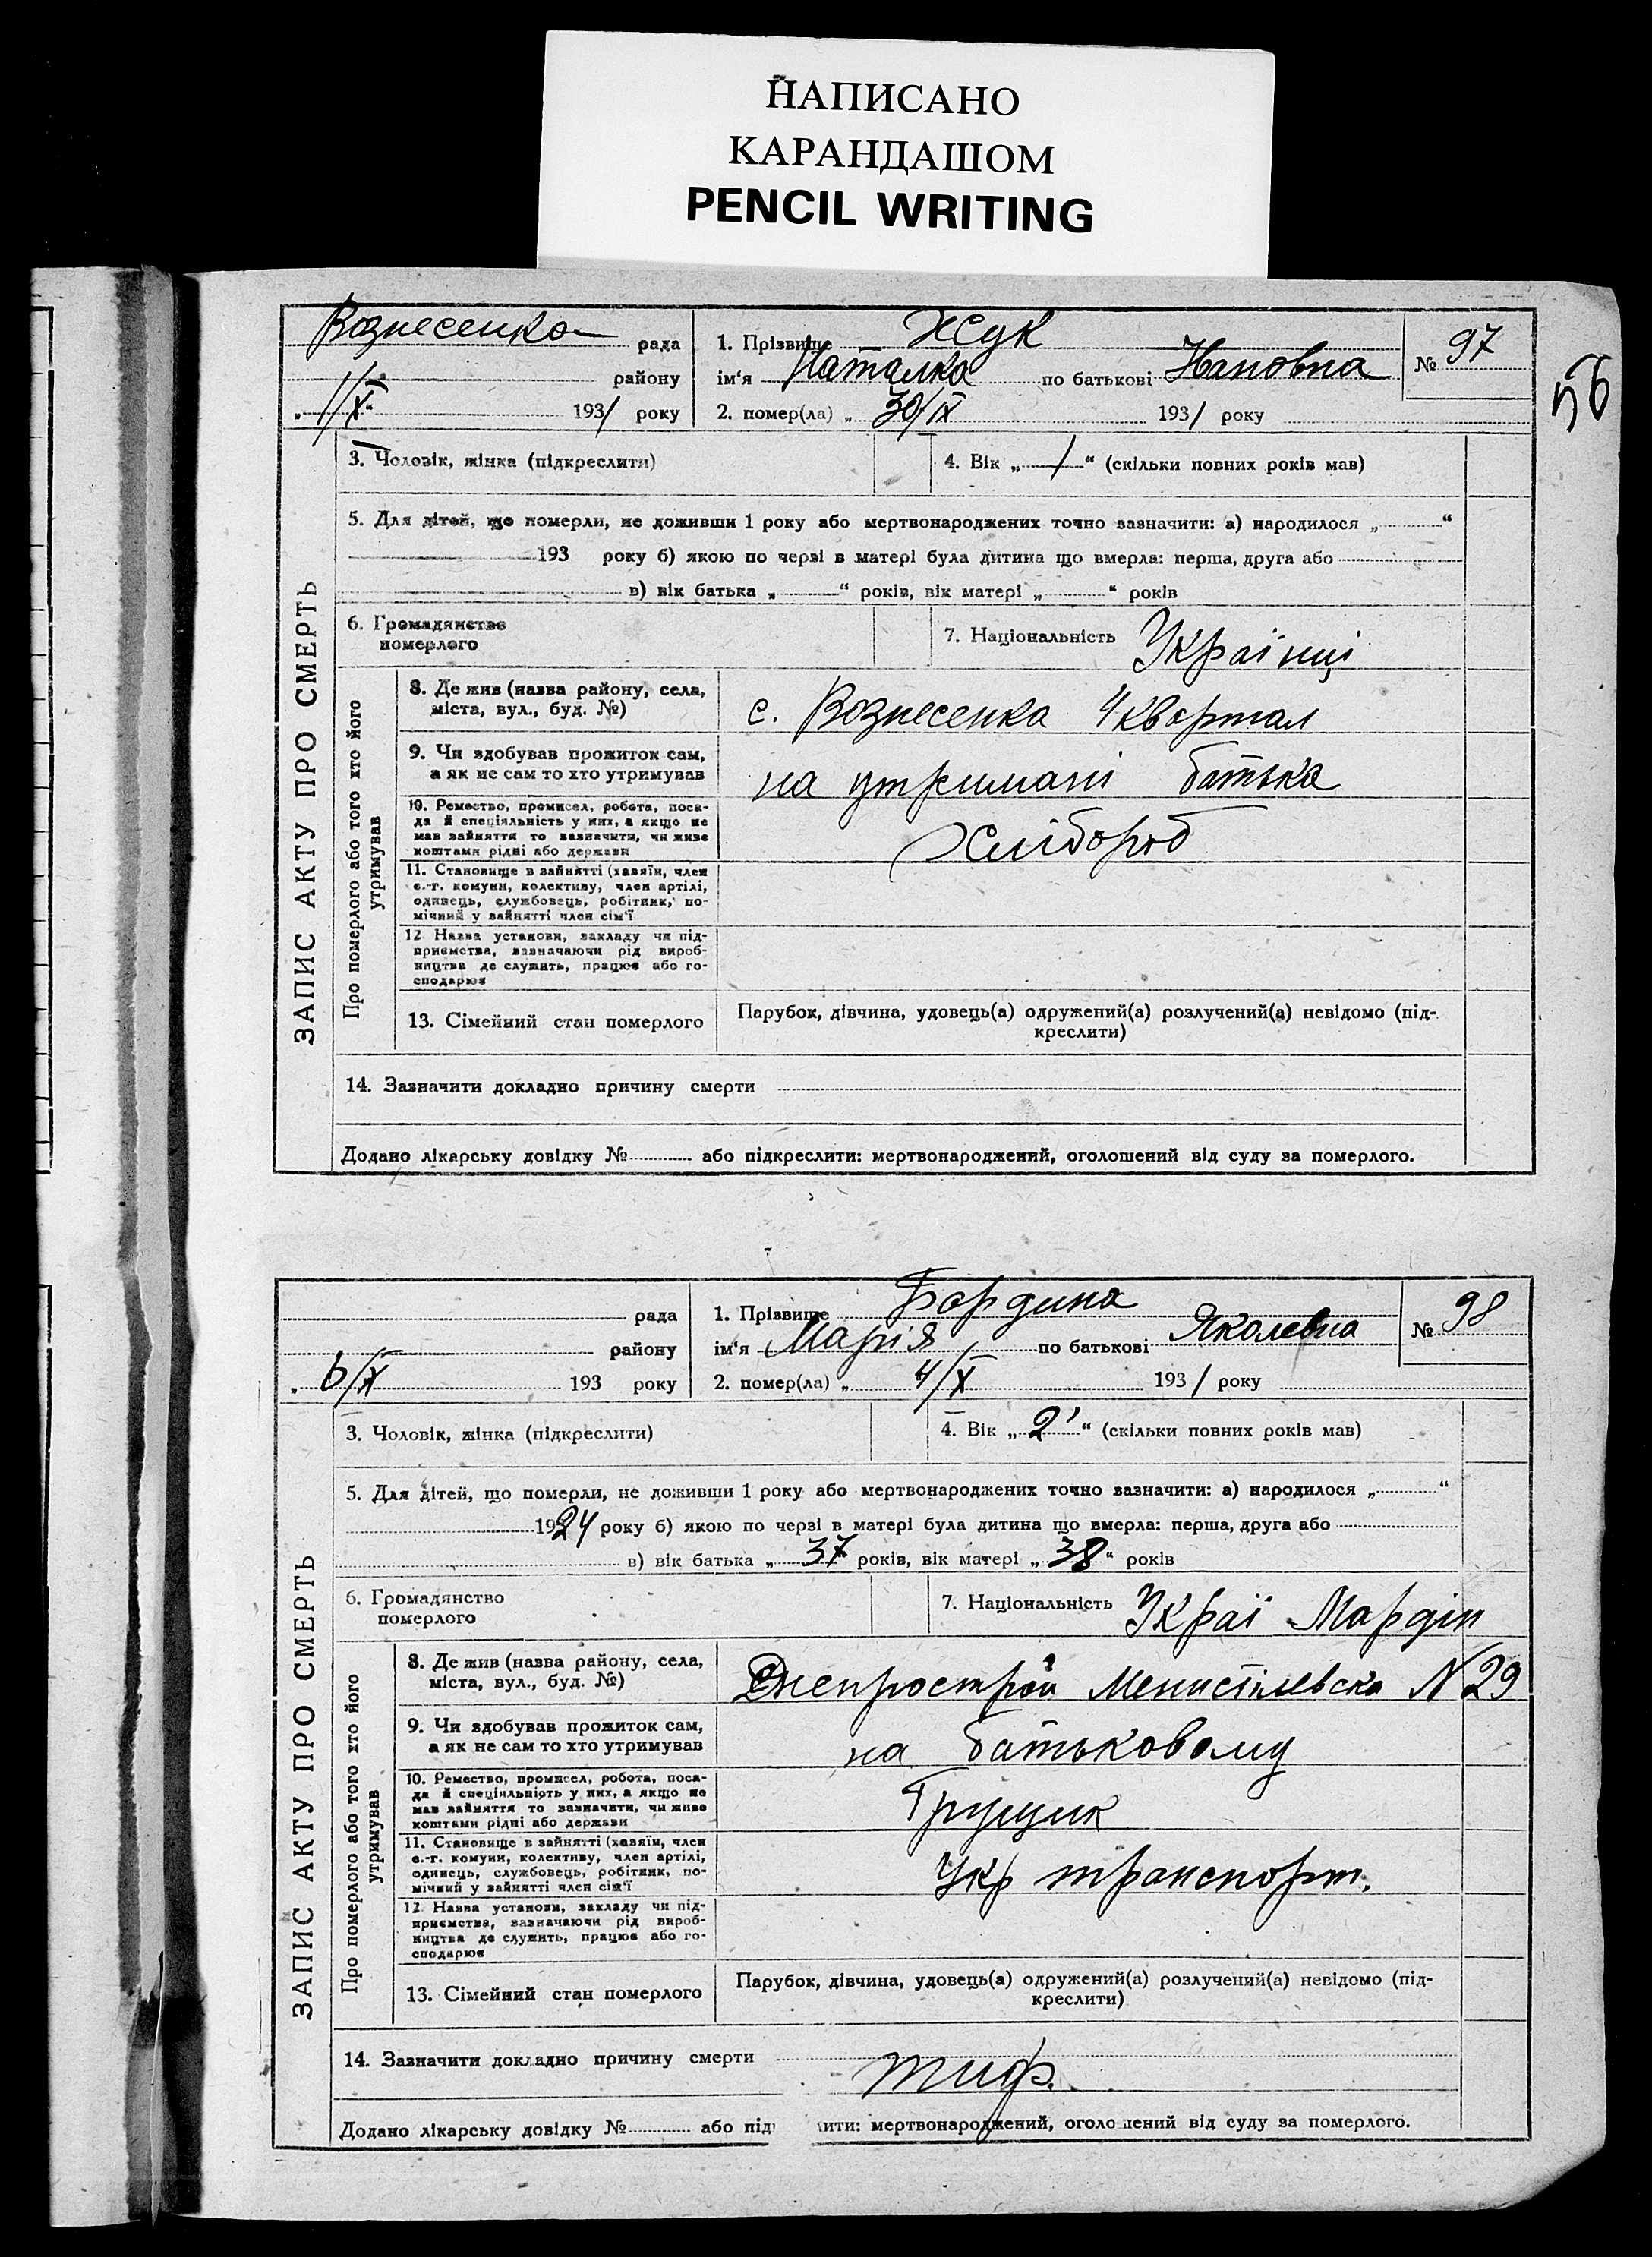 НАПИСАНО
КАРАНДАШОМ
PENCIL WRITING
56
ЗАПИС АКТУ ПРО СМЕРТЬ
Вознесенка рада
району
„ 1/X 1931 року
1. Прізвище Жук
ім'я Наталка по батькові
№ 97
2. помер(ла) „ 30/IX 1931 року
3. Чоловік, жінка (підкреслити)
4. Вік „ 1 “ (скільки повних років мав)
5. Для дітей, що померли, не доживши 1 року або мертвонароджених точно зазначити: а) народилося „ “
193 року б) якою по черзі в матері була дитина що вмерла: перша, друга або
в) вік батька „ “ років, вік матері „ “ років
6. Громадянство
померлого
7. Національність Українці
Про померлого або того хто його
утримував
8. Де жив (назва району, села,
міста, вул., буд. №)
с. Вознесенка 4 квартал
9. Чи здобував прожиток сам,
а як не сам то хто утримував
на утримані батька
10. Ремество, промисел, робота, поса-
да й спеціяльність у них, а якщо не
мав зайняття то зазначити, чи живе
коштами рідні або держави
Хлібороб
11. Становище в зайнятті (хазяїн, член
с.-г. комуни, колективу, член артілі,
одинець, службовець, робітник, по-
мічний у зайнятті член сім'ї
12 Назва установи, закладу чи під-
приємства, зазначаючи рід вироб-
ництва де служить, працює або го-
сподарює
13. Сімейний стан померлого
Парубок, дівчина, удовець(а) одружений(а) розлучений(а) невідомо (під-
креслити)
14. Зазначити докладно причину смерти
Додано лікарську довідку № або підкреслити: мертвонароджений, оголошений від суду за померлого.
ЗАПИС АКТУ ПРО СМЕРТЬ
рада
району
„ 6/X 193 року
1. Прізвище Бордина
ім'я Марія по батькові Яколевна
№ 98
2. помер(ла) „ 4/X 1931 року
3. Чоловік, жінка (підкреслити)
4. Вік „ 2 “ (скільки повних років мав)
5. Для дітей, що померли, не доживши 1 року або мертвонароджених точно зазначити: а) народилося „ “
1924 року б) якою по черзі в матері була дитина що вмерла: перша, друга або
в) вік батька „ 37 років, вік матері „ 38 “ років
6. Громадянство
померлого
7. Національність Украї
Про померлого або того хто його
утримував
8. Де жив (назва району, села,
міста, вул., буд. №)
Днепрострой N 29
9. Чи здобував прожиток сам,
а як не сам то хто утримував
на батьковому
10. Ремество, промисел, робота, поса-
да й спеціяльність у них, а якщо не
мав зайняття то зазначити, чи живе
коштами рідні або держави
Грущик
11. Становище в зайнятті (хазяїн, член
с.-г. комуни, колективу, член артілі,
одинець, службовець, робітник, по-
мічний у зайнятті член сім'ї
Укр транспорт.
12 Назва установи, закладу чи під-
приємства, зазначаючи рід вироб-
ництва де служить, працює або го-
сподарює
13. Сімейний стан померлого
Парубок, дівчина, удовець(а) одружений(а) розлучений(а) невідомо (під-
креслити)
14. Зазначити докладно причину смерти
тиф.
Додано лікарську довідку № або під ити: мертвонароджений, оголо ений від суду за померлого.